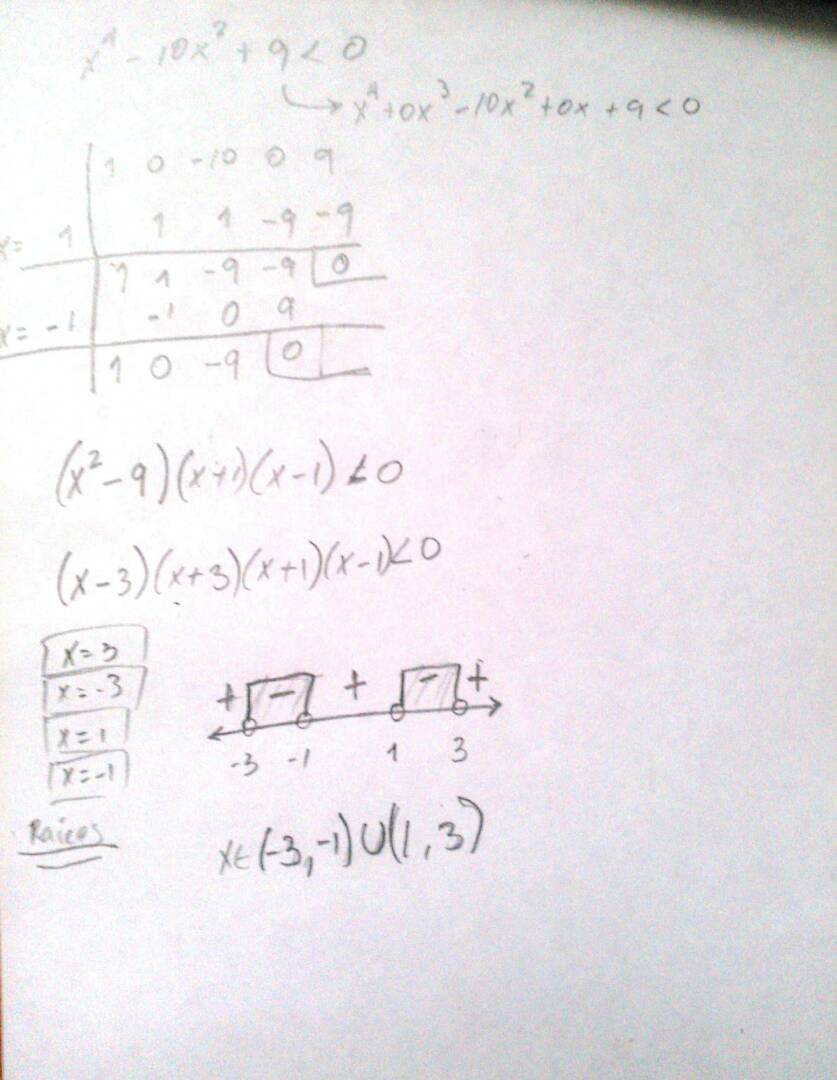 x⁴ - 10x² + 9 < 0
↳ x⁴ + 0x³ - 10x² + 0x + 9 < 0
1 0 -10 0 9
x = 1 1 1 -9 -9
1 1 -9 -9 0
x = -1 -1 0 9
1 0 -9 0
(x² - 9)(x+1)(x-1) < 0
(x-3)(x+3)(x+1)(x-1) < 0
x = 3
x = -3
x = 1
x = -1
Raices
+ - + - +
-3 -1 1 3
x ∈ (-3, -1) ∪ (1, 3)